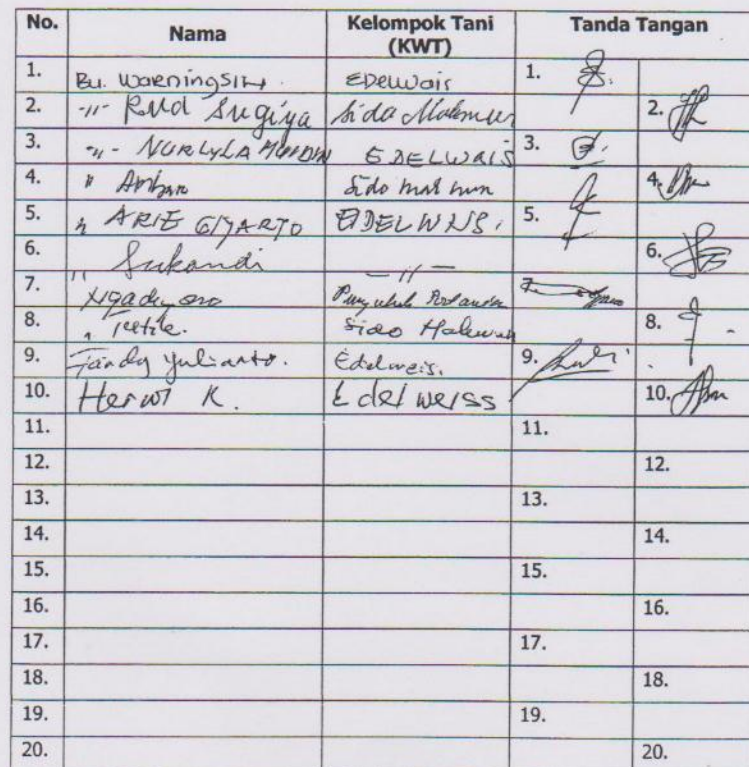 No. Nama Kelompok Tani (KWT) Tanda Tangan
1. Bu. WarningSih. EDelwais 1.
2. -"- Rud Sugiya Sido Makmur 2.
3. -"- NURLYLA EDELWAIS 3.
4. " Ambar Sido mak mur 4.
5. " ARIE GIYARTO EDELWAIS. 5.
6. Sukandi — " — 6.
7. " Ngadiyono 7.
8. " Sido Makmur 8.
9. Tandy Yulianto. Edelweis. 9.
10. Herwi K. Edelweiss 10.
11. 11.
12. 12.
13. 13.
14. 14.
15. 15.
16. 16.
17. 17.
18. 18.
19. 19.
20. 20.